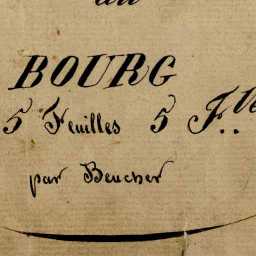 au
BOURG
5 Feuilles 5 F.lle
par Beucher